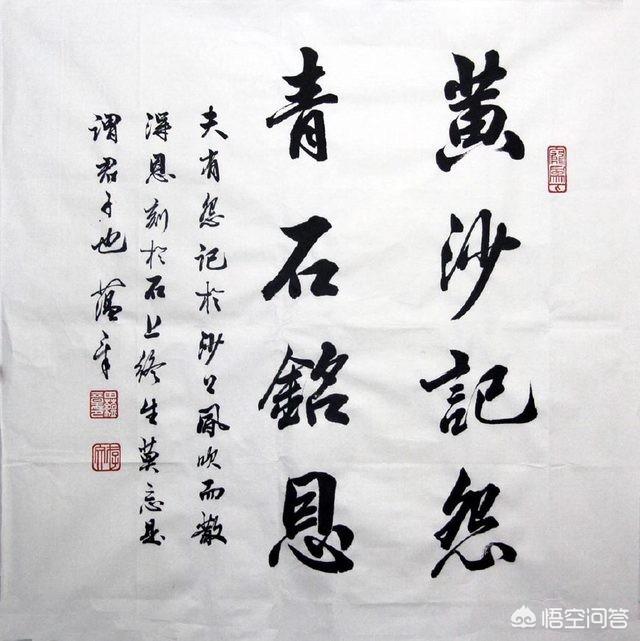 黃沙記怨
青石銘恩
夫有怨記於沙上風吹而散
深恩刻於石上終生莫忘是
謂君子也 蔭軍
悟空问答